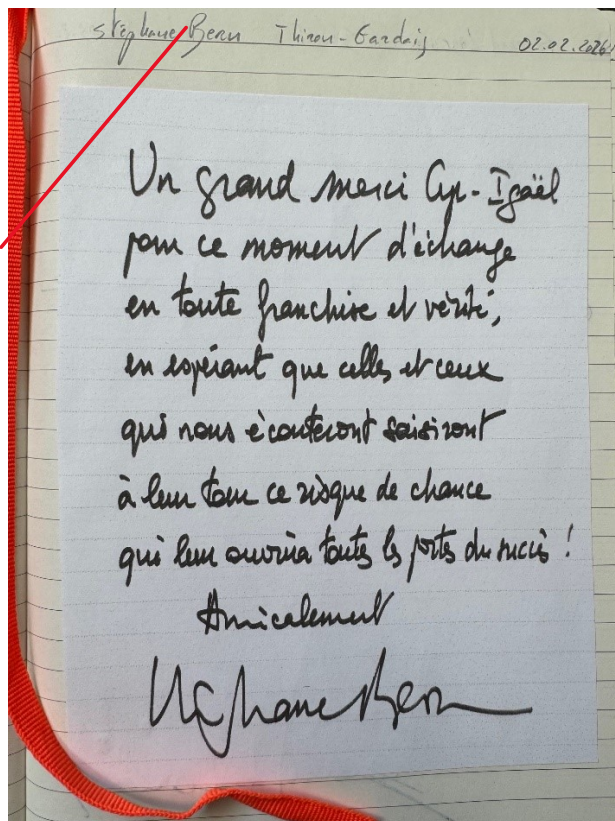 Stéphane Bern Thiron-Gardais 02.02.2026
Un grand merci Cyr-Igaël
pour ce moment d'échange
en toute franchise et vérité,
en espérant que celles et ceux
qui nous écouteront saisiront
à leur tour ce risque de chance
qui leur ouvrira toutes les portes du succès !
Amicalement
Stéphane Bern